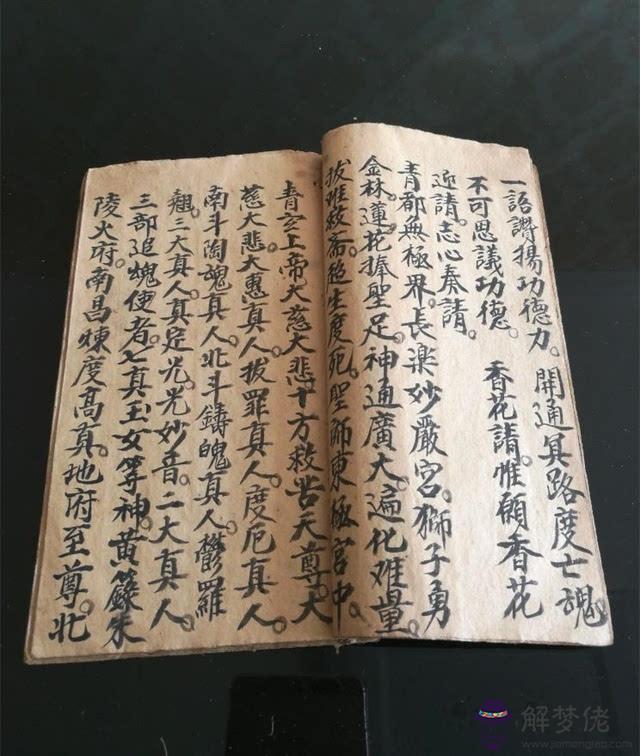 一語讚揚功德力。開通冥路度亡魂。
不可思議功德。 香花請。惟願香花
迎請。志心奏請。
青都無極界。長楽妙嚴宮。獅子勇
金林。蓮花捧聖足。神通廣大。遍化难量。
拔难救斋。超生度死。聖師東極宮中。
青玄上帝大慈大悲十方救苦天尊。大
慈大悲大惠真人。拔罪真人。度厄真人。
南斗陶魂真人。北斗鑄魄真人。欝羅
翹三大真人。真定光。光妙音。二大真人。
三部追魂使者。七真玉女等神。黄籙朱
陵火府。南昌煉度高真。地府至尊。北
解梦佬